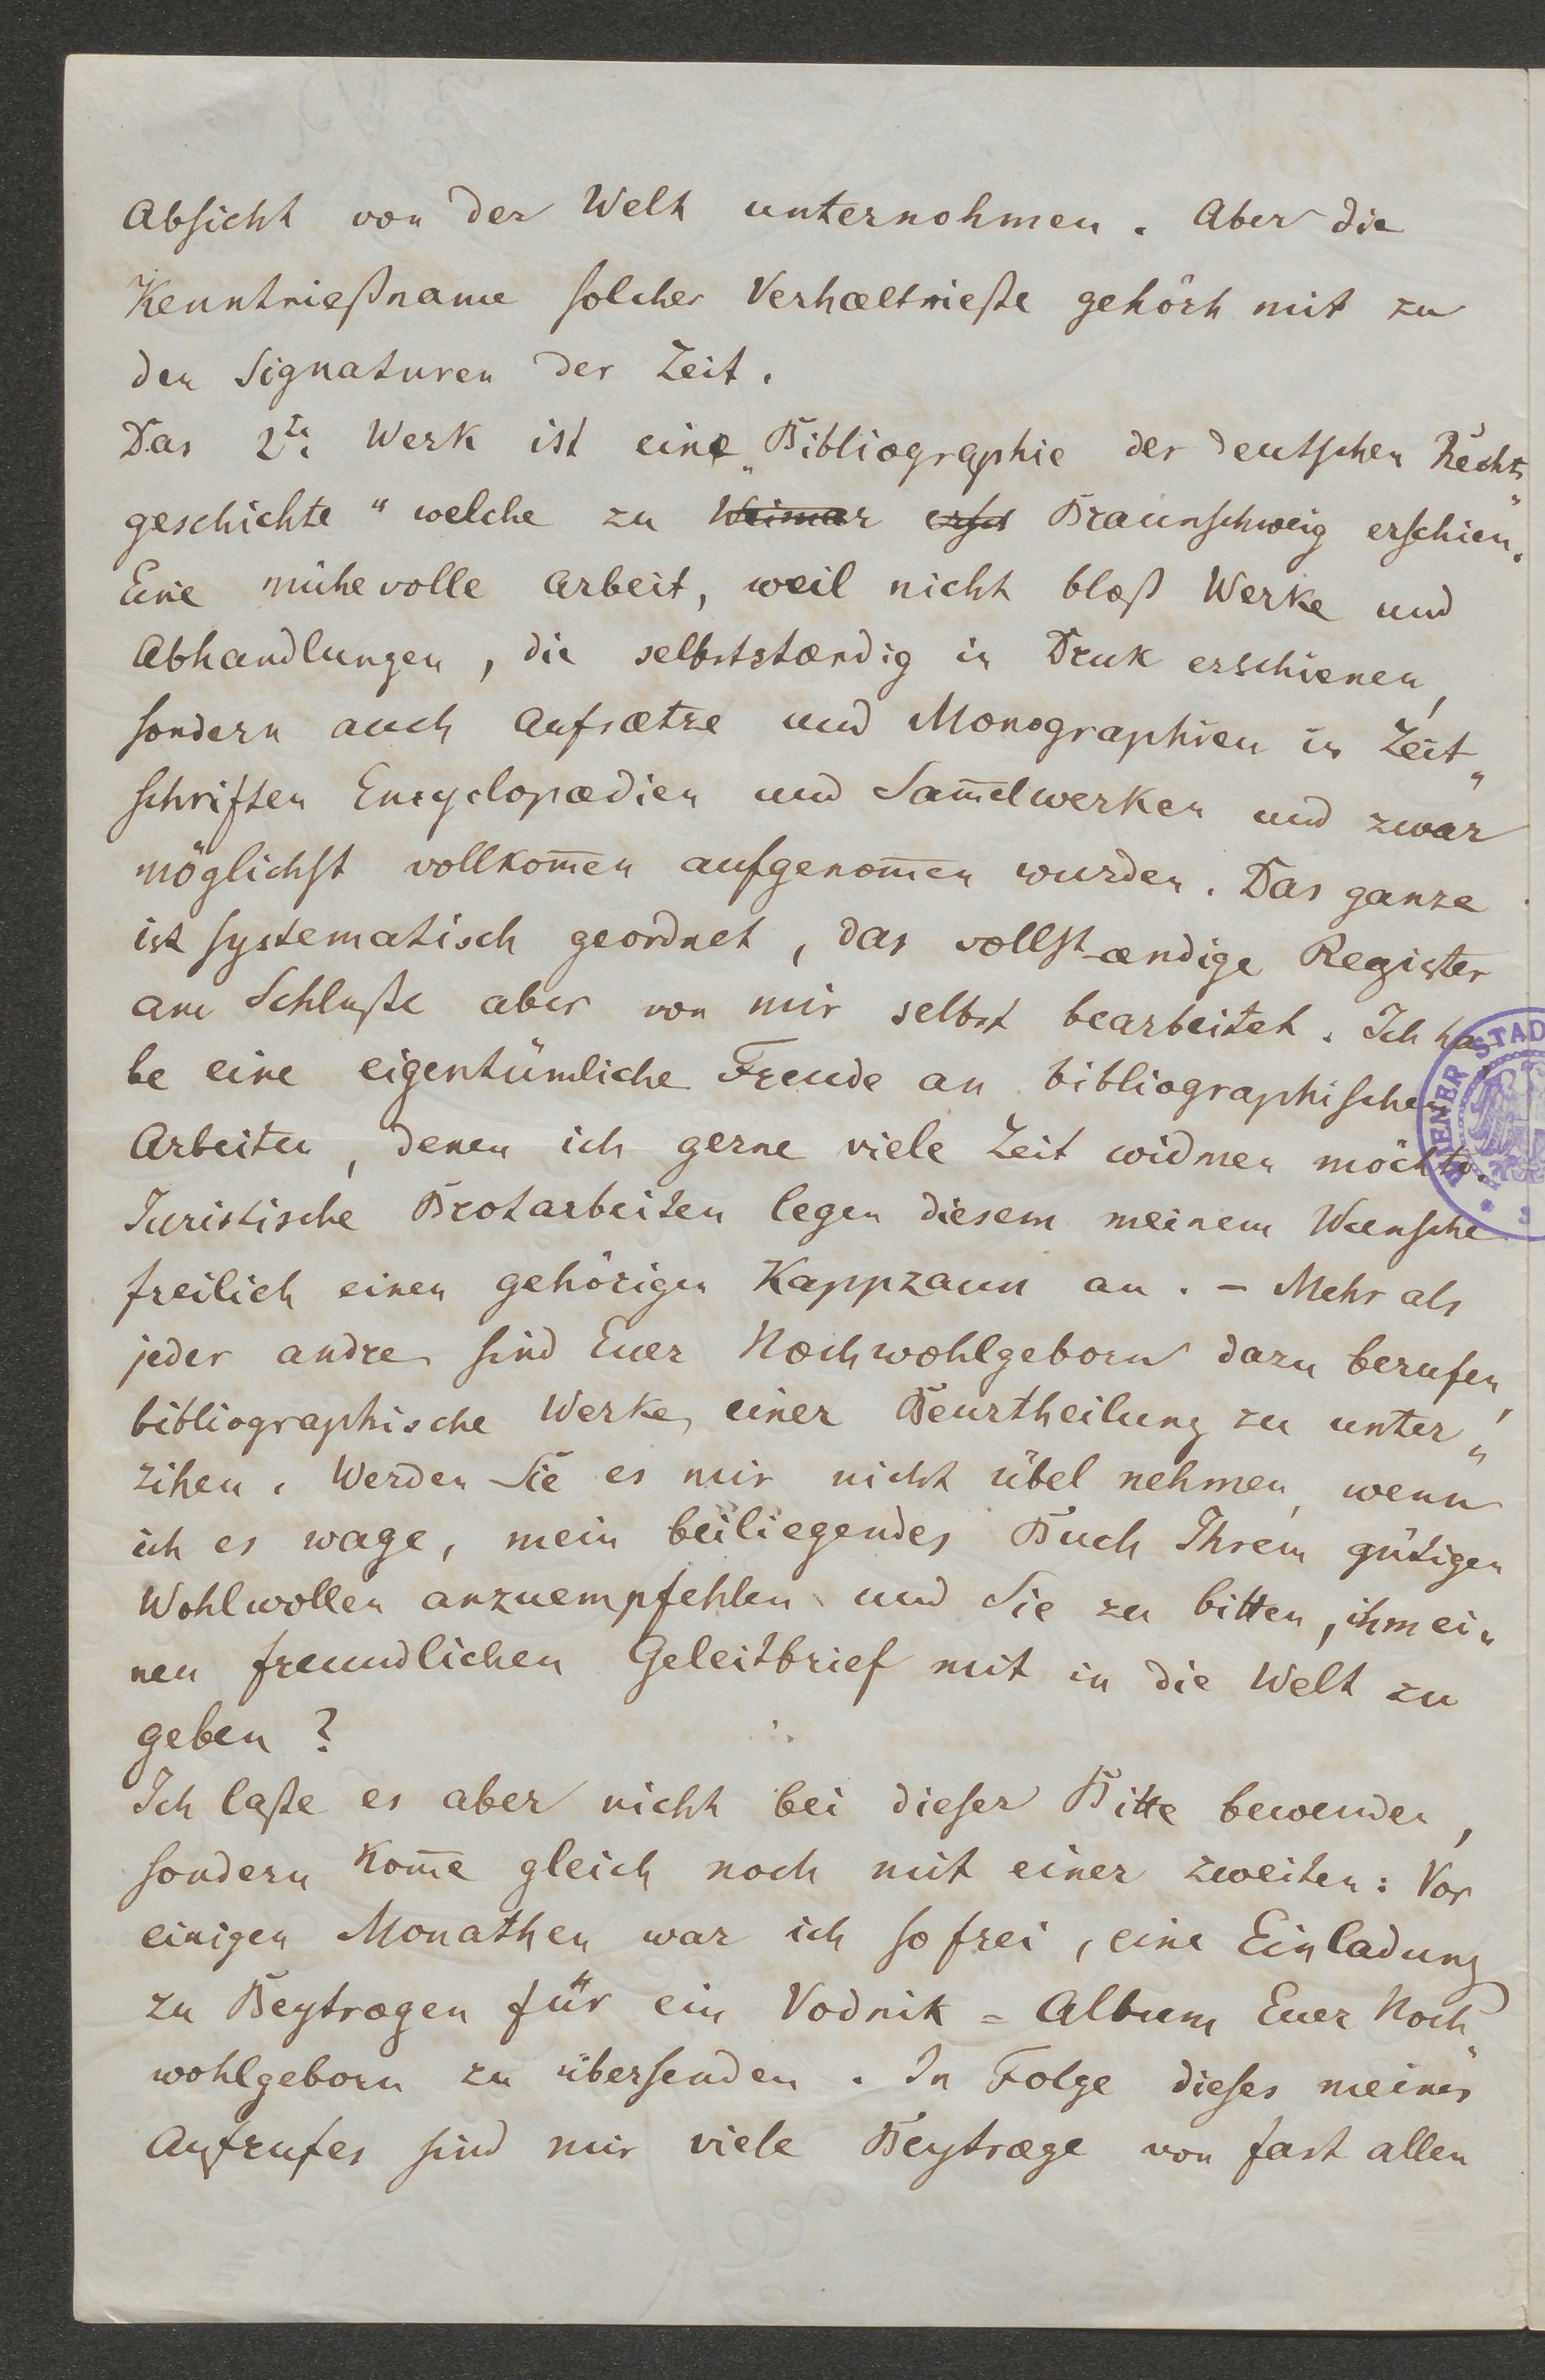 Absicht von der Welt unternohmen. Aber die
Kenntnießname solcher Verhæltnieße gehört mit zu
den Signaturen der Zeit.
Das 2te Werk ist eine „Bibliographie der deutschen Rechts„
geschichte“ welche zu Weimar ersch Braunschweig erschien.
Eine mühevolle Arbeit, weil nicht bloß Werke und
Abhandlungen, die selbstständig in Druk erschienen,
sondern auch Aufsætze und Monographien in Zeit„
schriften Encyclopædien und Sam̅elwerken und zwar
möglichst vollkom̅en aufgenom̅en wurden. Das ganze
ist systematisch geordnet, das vollstændige Register
am Schluße aber von mir selbst bearbeitet. Ich ha„
be eine eigentümliche Freude an bibliographischen
Arbeiten, denen ich gerne viele Zeit widmen möchte.
Juristische Brotarbeiten legen diesem meinem Wunsche
freilich einen gehörigen Kappzaum an. – Mehr als
jeder andre sind Euer Hochwohlgeborn dazu berufen,
bibliographische Werke einer Beurtheilung zu unter„
zihen. Werden Sie es mir nicht übel nehmen, wenn
ich es wage, mein beiliegendes Buch Ihrem gütigen
Wohlwollen anzuempfehlen und Sie zu bitten, ihm ei„
nen freundlichen Geleitbrief mit in die Welt zu
geben?
Ich laße es aber nicht bei dieser Bitte bewenden,
sondern kom̅e gleich noch mit einer zweiten: Vor
einigen Monathen war ich so frei, eine Einladung
zu Beytrægen für ein Vodnik = Album Euer Hoch„
wohlgeborn zu übersenden. In Folge dieses meines
Aufrufes sind mir viele Beytræge von fast allen
WIENER STAD